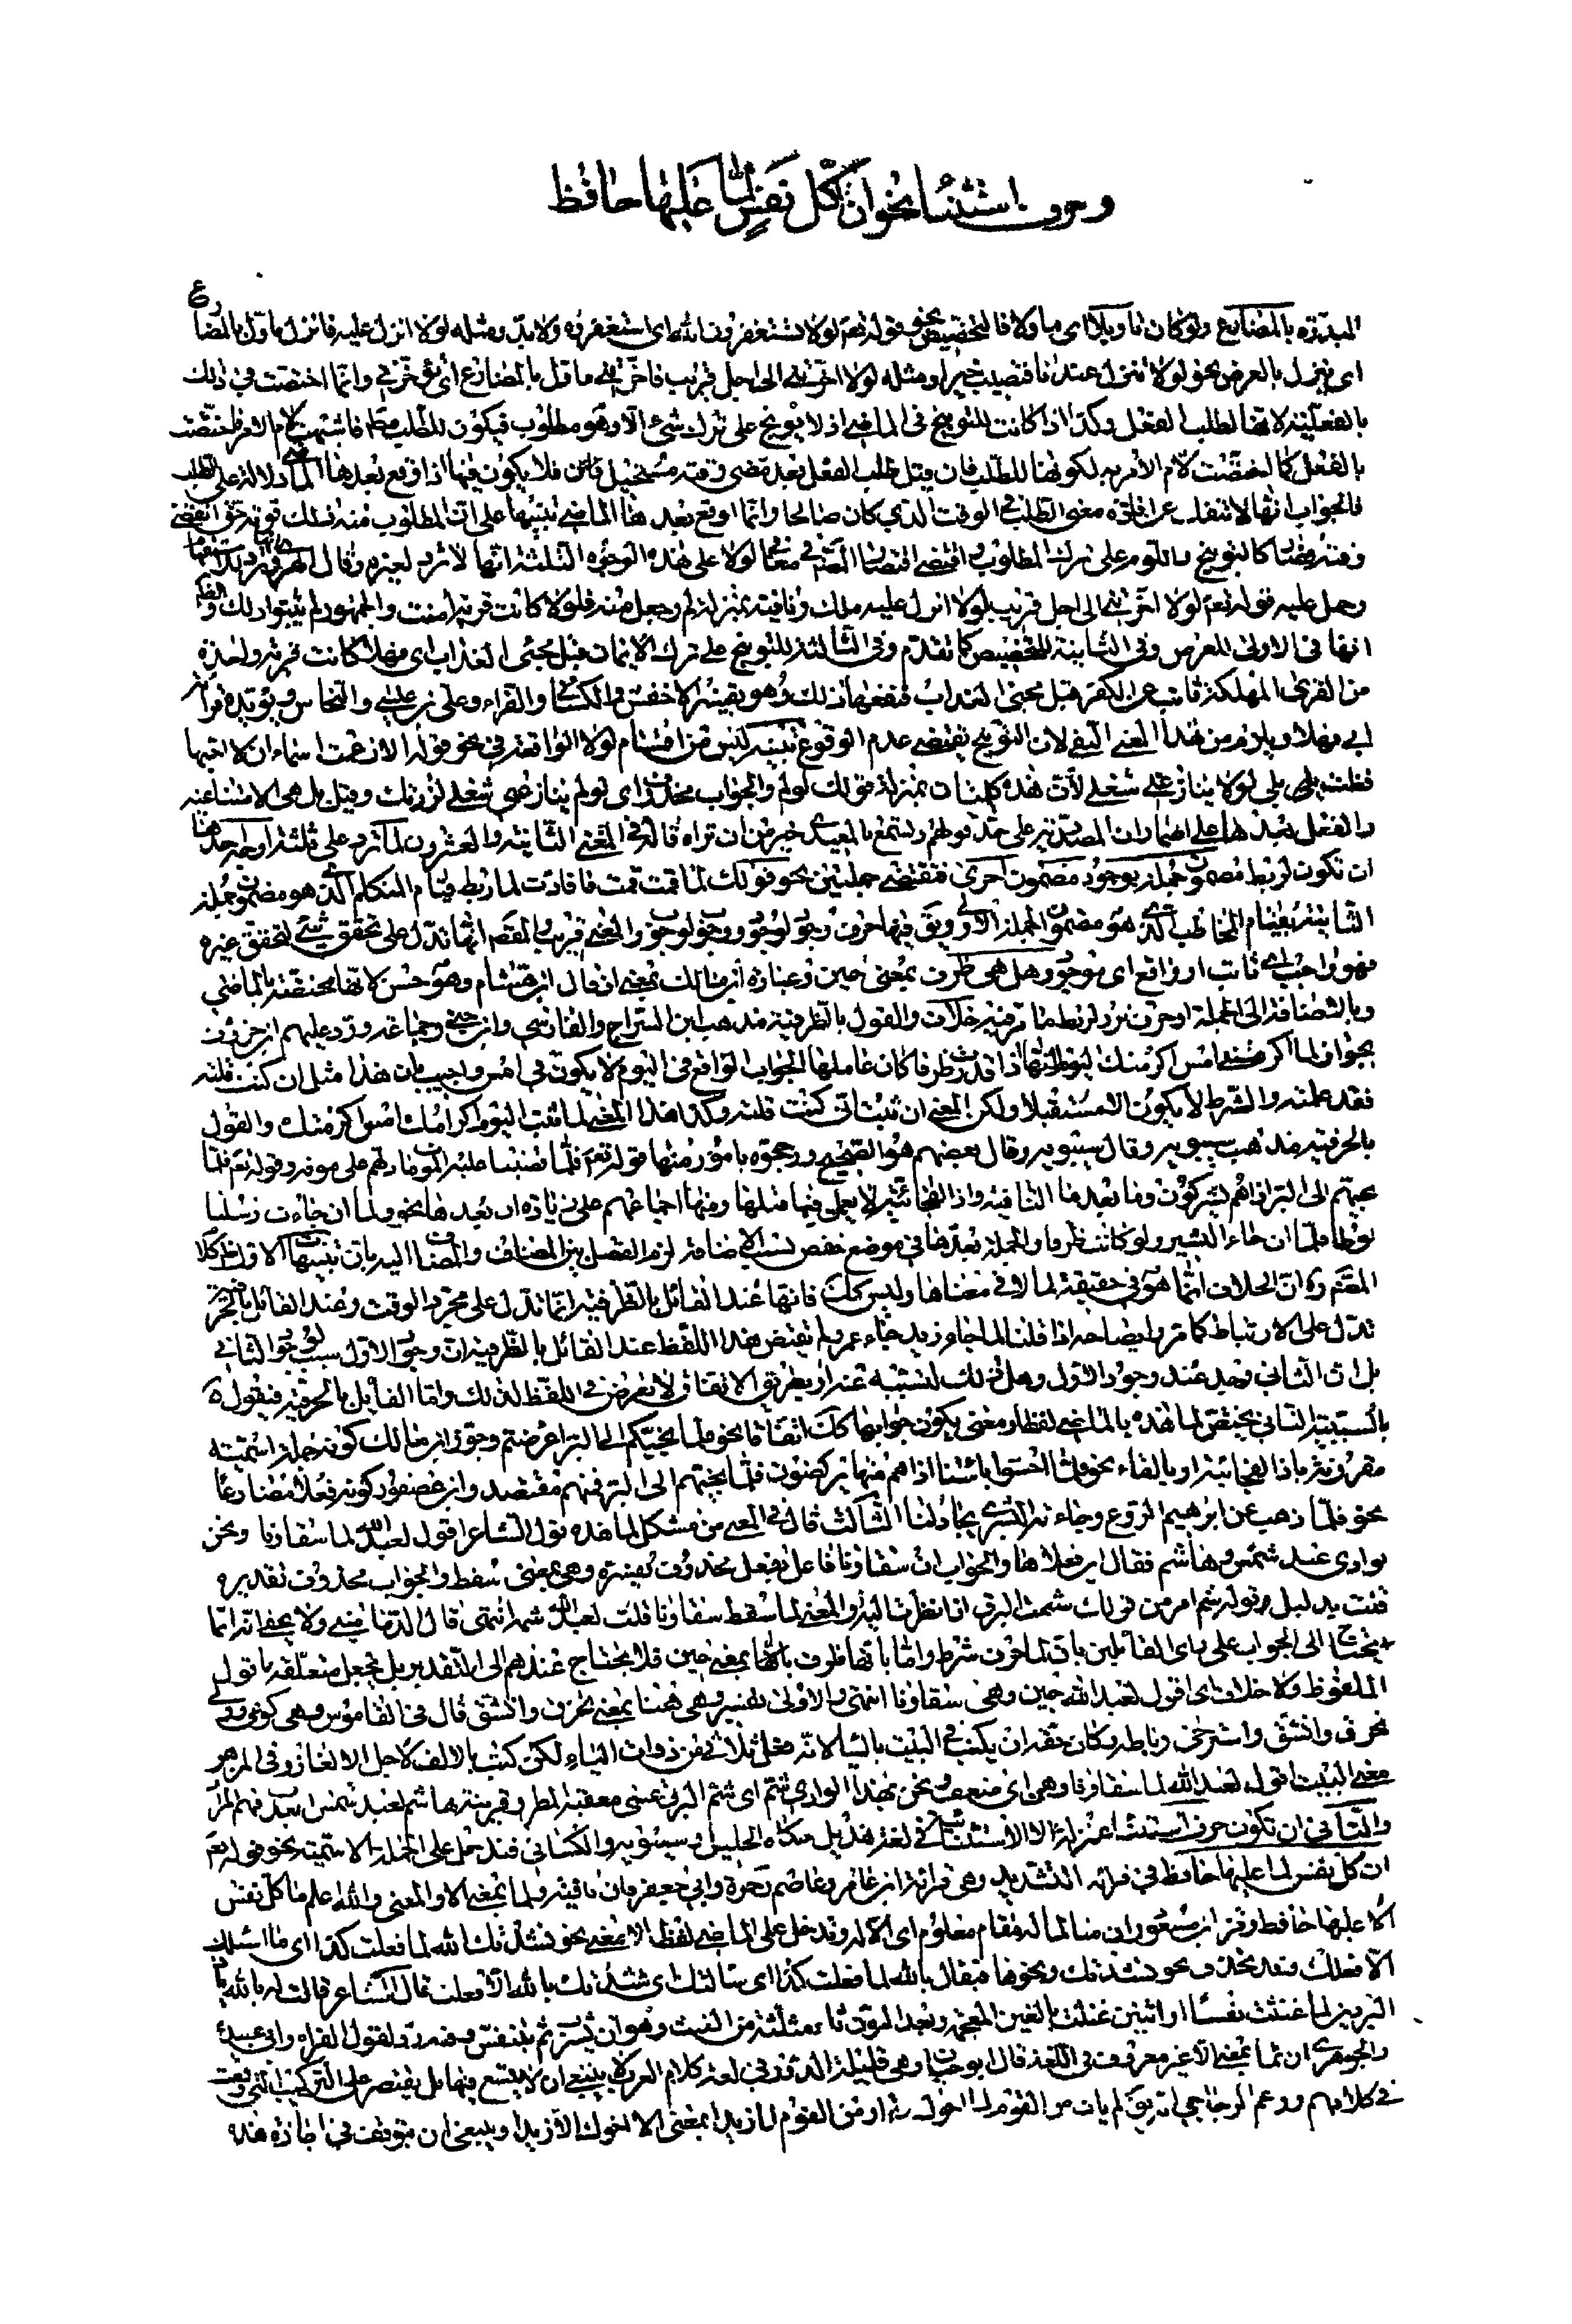 وحرف استثنا نحو ان كل نفس لما عليها حافظ
المبدوة بالمضارع ولو كان تاويلا اى ماولا فالتحضيض نحو قوله تعم لولا تستغفرون الله اى استغفروه ولا بد ومثله لولا انزل عليه فانزل ماول بالمضارع
اى ينزل بالعرض نحو لولا تنزل عندنا فتصيب خيرا ومثله لولا اخرتنى الى اجل قريب فاخرتنى ماول بالمضارع اى تؤخرنى وانما اختصت فى ذلك
بالفعلية لانها لطلب الفعل وكذا اذا كانت للتوبيخ فى الماضى اذ لا يوبخ على ترك شئ الا وهو مطلوب فيكون للطلب فاشبهت لام الامر فاختصت
بالفعل كما اختصت لام الامر به لكونها للطلب فان قيل طلب الفعل بعد مضى وقته مستحيل فلا يكون فيها اذا وقع بعدها الماضى دلالة على الطلب
فالجواب انها لا تنفك عن افادة معنى الطلب فى الوقت الذى كان صالحا وانما اوقع بعد هنا الماضى تنبيها على ان المطلوب منه ذلك فوته حتى انقضى
وقته كالتوبيخ واللوم على ترك المطلوب لولا على هذه الوجوه الثلثة انها لا ترد لغيره وقال الهروى ترد
وحمل عليه قوله تعم لولا اخرتنى الى اجل قريب لولا انزل عليه ملك ونافية بمنزلة لم وجعل منه فلولا كانت قرية امنت والجمهور لم يثبتوا ذلك
انها فى الاولى للعرض وفى الثانية للتحضيض كما تقدم وفى الثالثة للتوبيخ على ترك الايمان قبل مجئى العذاب اى فهلا كانت قرية واحدة
من القرى المهلكة تابت عن الكفر قبل مجئى العذاب فنفعها ذلك وهو تفسير الاخفش والكسائى والفراء وعلى بن عيسى والنحاس ويؤيده قراءة
ابى فهلا ويلزم من هذا المعنى النفى لان التوبيخ يقتضى عدم الوقوع تنبيه ليس من اقسام لولا الواقعة فى نحو قوله الا زعمت اسماء ان لا احبها
فقلت بلى لولا ينازعنى شغلى لان هذه كلمتان بمنزلة قولك لو لم والجواب محذوف اى لو لم ينازعنى شغلى لزرتك وقيل بل هى الامتناعية
والفعل بعدها على اضمار ان المصدرية على حد قولهم تسمع بالمعيدى خير من ان تراه قاله فى المغنى الثانية والعشرون لما ترد على ثلثة اوجه احدها
ان تكون لربط مضمون جملة بوجود مضمون اخرى فتقتضى جملتين نحو قولك لما قمت قمت فافادت لما ربط قيام المتكلم الذى هو مضمون جملة
الثانية بقيام المخاطب الذى هو مضمون الجملة الاولى ويق فيها حرف وجود لوجود ووجوب لوجوب والمعنى قريب والمقصد انها تدل على تحقق شئ لتحقق غيره
فهو واجب اى ثابت او واقع اى موجود وهل هى ظرف بمعنى حين وعبارة ابن مالك بمعنى اذ قال ابن هشام وهو حسن لانها مختصة بالماضى
وبالاضافة الى الجملة او حرف ترد لربط ما مر فيه خلاف والقول بالظرفية مذهب ابن السراج والفارسى وابن جنى وجماعة ورد عليهم ابن خروف
بجواز لما اكرمتنى امس اكرمتك اليوم لانها اذا قدرت ظرفا كان عاملها الجواب الواقع فى اليوم لا يكون فى امس واجيب بان هذا مثل ان كنت قلته
فقد علمته والشرط لا يكون الا مستقبلا ولكن المعنى ان ثبت انى كنت قلته وكذا هذا المعنى لما ثبت اليوم اكرامك امس اكرمتك والقول
بالحرفية مذهب سيبويه وقال سيبويه وقال بعضهم هو الصحيح ورجحوه بامور منها قوله تعم فلما قضينا عليه الموت ما دلهم على موته وقوله تعم فلما
نجيهم الى البر اذا هم يشركون وما بعد ما النافية واذا الفجائية لا يعمل فيما قبلها ومنها اجماعهم على زيادة ان بعدها نحو ولما ان جاءت رسلنا
لوطا فلما ان جاء البشير ولو كانت ظرفا والجملة بعدها فى موضع خفض بالاضافة لزم الفصل بين المضاف والمضاف اليه بان تنبيهات الاول ظاهر كلام
المقم ره ان الخلاف انما هو فى حقيقة لما لا فى معناها وليس كك فانها عند القائل بالظرفية انما تدل على مجرد الوقت وعند القائل بالحرفية
تدل على الارتباط كما مر وايضاحه اذا قلنا لما جاء زيد جاء عمرو لم يقتض هذا اللفظ عند القائل بالظرفية ان وجود الاول سبب لوجود الثانى
بل ان الثانى وجد عند وجود الاول وهل ذلك لتسببه عنه او بطريق الاتفاق لا تعرض فى اللفظ لذلك واما القايل بالحرفية فيقول
بالسببية الثانى يختص لما هذه بالماضى لفظا ومعنى يكون جوابها كك اتفاقا نحو فلما نجيكم الى البر اعرضتم وجوز ابن مالك كونه جملة اسمية
مقرونة باذا الفجائية او بالفاء نحو فلما احسوا باسنا اذا هم منها يركضون فلما نجيهم الى البر فمنهم مقتصد وابن عصفور كونه فعلا مضارعا
نحو فلما ذهب عن ابرهيم الروع وجاءته البشرى يجادلنا الثالث قال فى المغنى من مشكل لما هذه قول الشاعر اقول لعبد الله لما سقاؤنا ونحن
بوادى عبد شمس وهاشم فقال اين فعلاها والجواب ان سقاؤنا فاعل بفعل محذوف يفسره وهى بمعنى سقط والجواب محذوف تقديره
قلت بدليل قوله شم امر من قولك شمت البرق اذا نظرت اليه والمعنى لما سقط سقاؤنا قلت لعبد الله شمه انتهى قال الدمامينى ولا يخفى انه انما
يحتاج الى الجواب على راى القائلين بانها حرف شرط واما بانها ظرف بمعنى حين فلا يحتاج عندهم الى التقدير بل تجعل متعلقه باقول
الملفوظ ولا خلاف اى اقول لعبد الله حين وهى سقاؤنا انتهى والاولى تفسير وهى هنا بمعنى تخرق وانشق قال فى القاموس وهى كوعى وولى
تخرق وانشق واسترخى رباطه وكان حقه ان يكتب فى البيت بالياء لانه فعل ثلاثى من ذوات الياء لكن كتب بالالف لاجل الالغاز وفى المزهر
معنى البيت اقول لعبد الله لما سقاؤنا وهى اى ضعف ونحن بهذا الوادى شم اى شم البرق عسى معقبة المطر وقرينة هاشم لعبد شمس ابعدت فهم المراد
والثانى ان تكون حرف استثناء بمنزلة الا الاستثنائية فى لغة هذيل حكاه الخليل وسيبويه والكسائى فتدخل على الجملة الاسمية نحو قوله تعم
ان كل نفس لما عليها حافظ فى قراءة التشديد وهى قراءة ابن عامر وعاصم وحمزة وابى جعفر فان نافية ولما بمعنى الا والمعنى والله اعلم ما كل نفس
الا عليها حافظ وقرا ابن مسعود ان منا لما له مقام معلوم اى الا له وقد خل على الماضى لفظا لا معنى نحو نشدتك الله لما فعلت كذا اى ما اسئلك
الا فعلك وقد يحذف نحو نشدتك ونحوها فيقال بالله لما فعلت كذا اى سالتك اى نشدتك بالله الا فعلت قال الشاعر قالت له بالله يا ذا
البردين لما غنثت نفسا او اثنين غنثت بالغين المعجمة وبعد النون ثاء مثلثة من الغنث وهو ان يشرب ثم يتنفس وفيه رد لقول الفراء وابى عبيدة
والجوهرى ان لما بمعنى الا غير معروف فى اللغة قال ابو حيان وهى قليلة الدور فى كلام العرب فينبغى ان لا يتسع فيها بل يقتصر على التركيب التى وقعت
فى كلامهم وزعم الزجاجى انه يق لم يات من القوم لما اخوك ولم ار من القوم لما زيدا بمعنى الا اخوك والا زيدا وينبغى ان يتوقف فى اجازة هذه